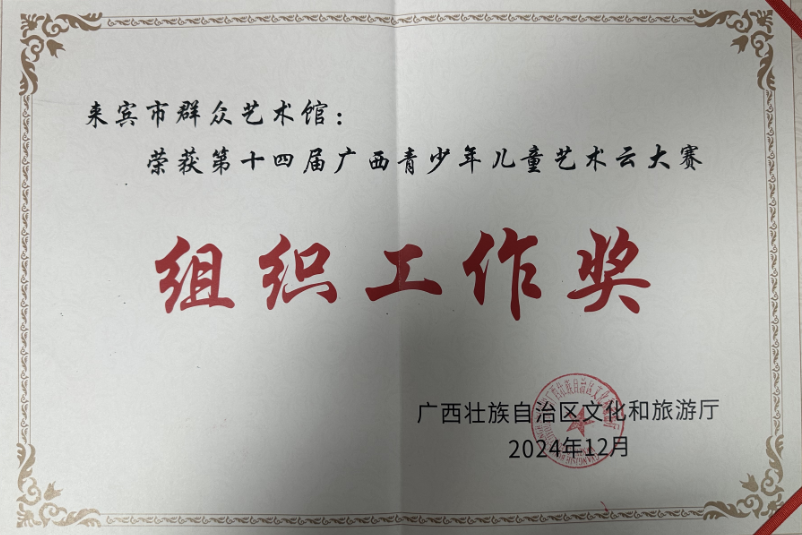 来宾市群众艺术馆：
荣获第十四届广西青少年儿童艺术云大赛
组织工作奖
广西壮族自治区文化和旅游厅
2024年12月